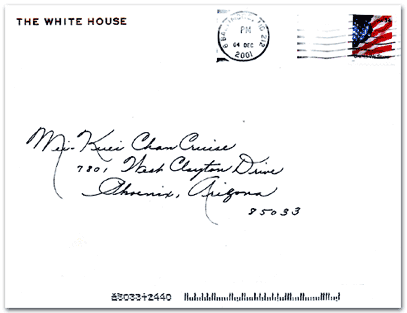 THE WHITE HOUSE
PM
04 DEC
2001
Mei-Kuei Chan Cruise
7801 West Clayton Drive
Phoenix, Arizona
85033
85033+2440